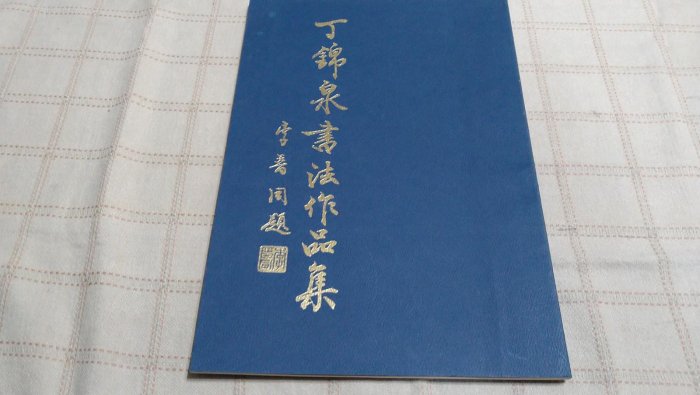 丁錦泉書法作品集
李普同題